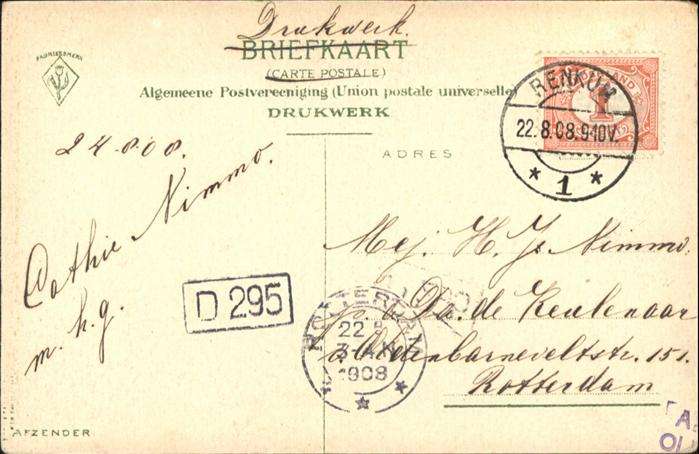 Drukwerk.
BRIEFKAART
(CARTE POSTALE)
Algemeene Postvereeniging (Union postale universelle)
DRUKWERK
FABRIEKSMERK
RENKUM
22.8.08.9-10V.
* 1 *
1
ADRES
24-8-08.
Cathie Nimmo.
m. h. g.
Mej. H. Js. Nimmo.
p. a. Da. de Keulenaar
Oldenbarneveltstr. 151.
Rotterdam
D 295
ROTTERDAM
22 8
1908
AFZENDER